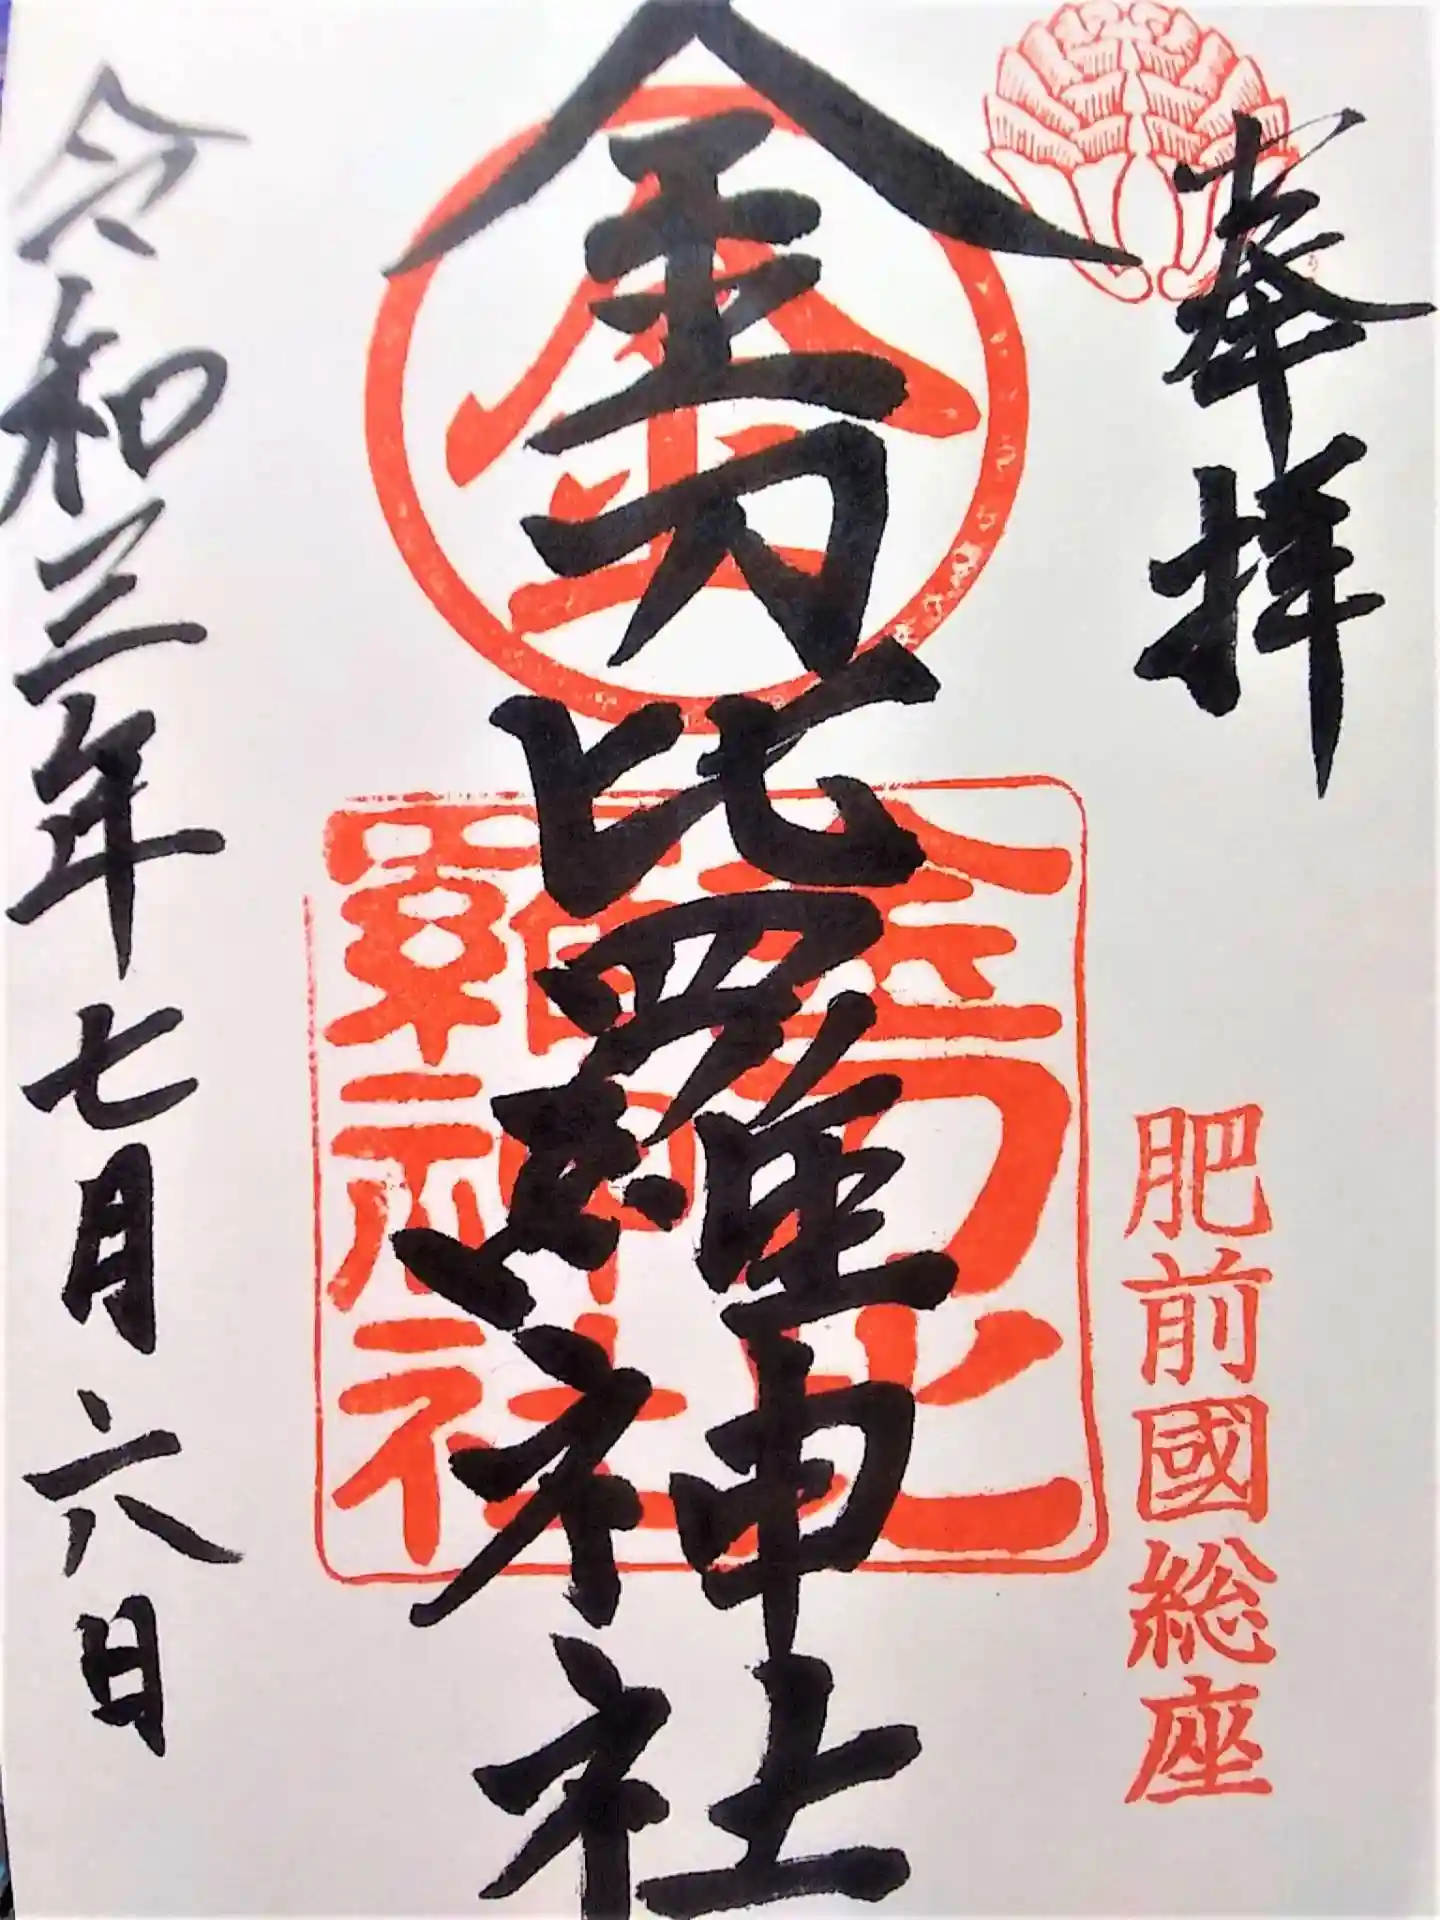 奉拝
肥前國総座
金刀比羅神社
金
金刀比
羅神社
令和三年七月六日